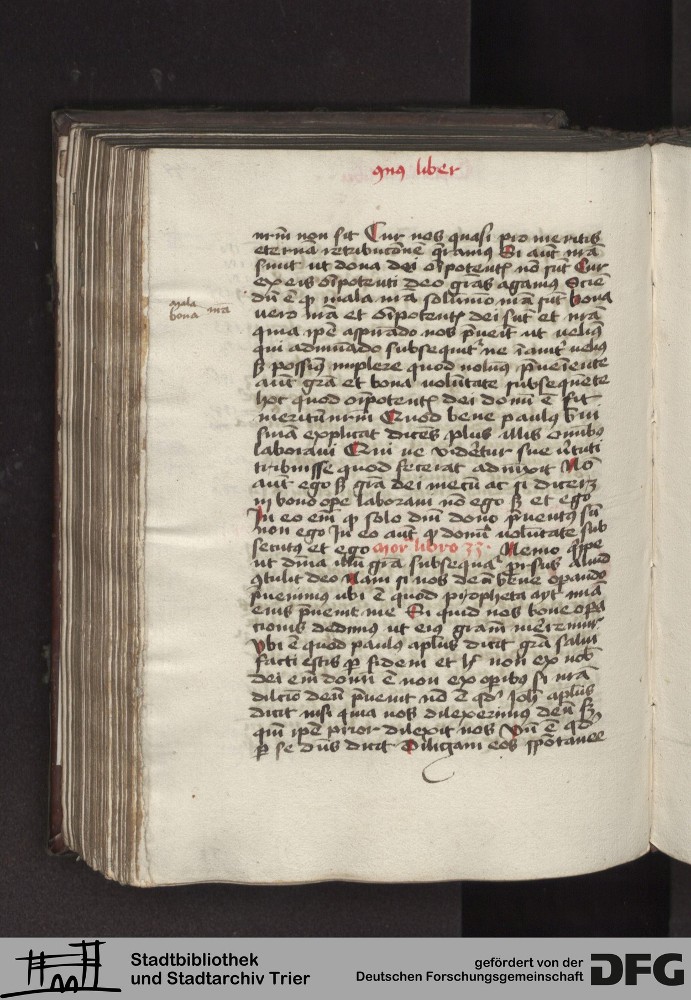 liber
nrm̄ non sit Cur nos quasi pro meritis
eternā retribucōnē q̄ramus Si aūt nr̄a
sunt ut dona dei oīpotentꝭ nō sūt Cur
ex eis oīpotenti deo gr̄as agamus Sciē
dū ē ꝙ mala nr̄a solūmo nr̄a sūt bona
mala
bona nr̄a
vero nr̄a et oīpotentꝭ dei sūt et nr̄a
quia ip̄e aspirādo nos p̄ueit ut velimꝰ
qui adiuuādo subsequitᷣ ne īaniter velimꝰ
sꝫ possimꝰ implere quod volumꝰ p̄ueniente
aūt gr̄a et bona volūtate subsequēte
hoc quod oīpotentꝭ dei donū ē fit
meritū nrm̄ Quod bene paulus b̄ui
snīa explicat dicēs plus illis omībus
laboraui Qui ne viderētur sue v̄tuti
tribuisse quod fecerat adiūxit Nō
aūt ego sꝫ gr̄a dei mecū ac si diceret
in bono oꝑe laboraui nō ego sꝫ et ego
In eo eīm ꝙ solo dn̄i dono p̄uentus sū
non ego In eo aūt ꝙ donū volūtate sub
secutus et ego mor libro 33 Nemo q̄ppe
ut dīna illū gr̄a subsequatᷣ prius aliud
ꝯtulit deo Nam si nos deū bene oꝑando
p̄uenimus ubi ē quod propheta ayt mīa
eius p̄ueniet me Si quid nos bone oꝑa
cionis dedimus ut eius gram̄ mēremur
Vbi ē quod paulus apl̄us dicit gr̄a salui
facti estis ꝑ fidem et h̄ non ex nob̄
dei em̄ donū ē non ex oꝑibus si nr̄a
dil̄cio deū p̄uenit vbi ē qd̓ Joh̄ apl̄us
dicit nisi quia nos dilexerimus deū sꝫ
qm̄ ip̄e prior dilexit nos Vn̄ ē qd̓
ꝑ se dn̄s dicit Diligam eos spōtanee
Stadtbibliothek
und Stadtarchiv Trier
gefördert von der
Deutschen Forschungsgemeinschaft
DFG